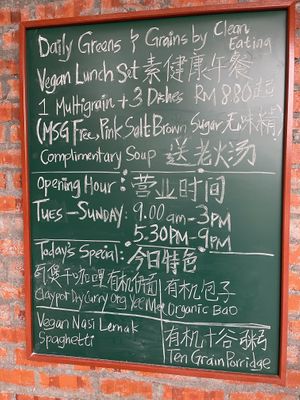 Daily Greens & Grains by Clean Eating
Vegan Lunch Set 素健康午餐
1 Multigrain + 3 Dishes RM 8.80起
(MSG Free, Pink Salt Brown Sugar 无味精)
Complimentary Soup 送老火汤
Opening Hour: 营业时间
TUES - SUNDAY: 9.00 am - 3PM
5.30PM - 9PM
Today's Special: 今日特色
瓦煲干咖喱有机伊面
Claypot Dry Curry Org Yee Mee
有机包子
Organic Bao
Vegan Nasi Lemak
Spaghetti
有机十谷粥
Ten Grain Porridge